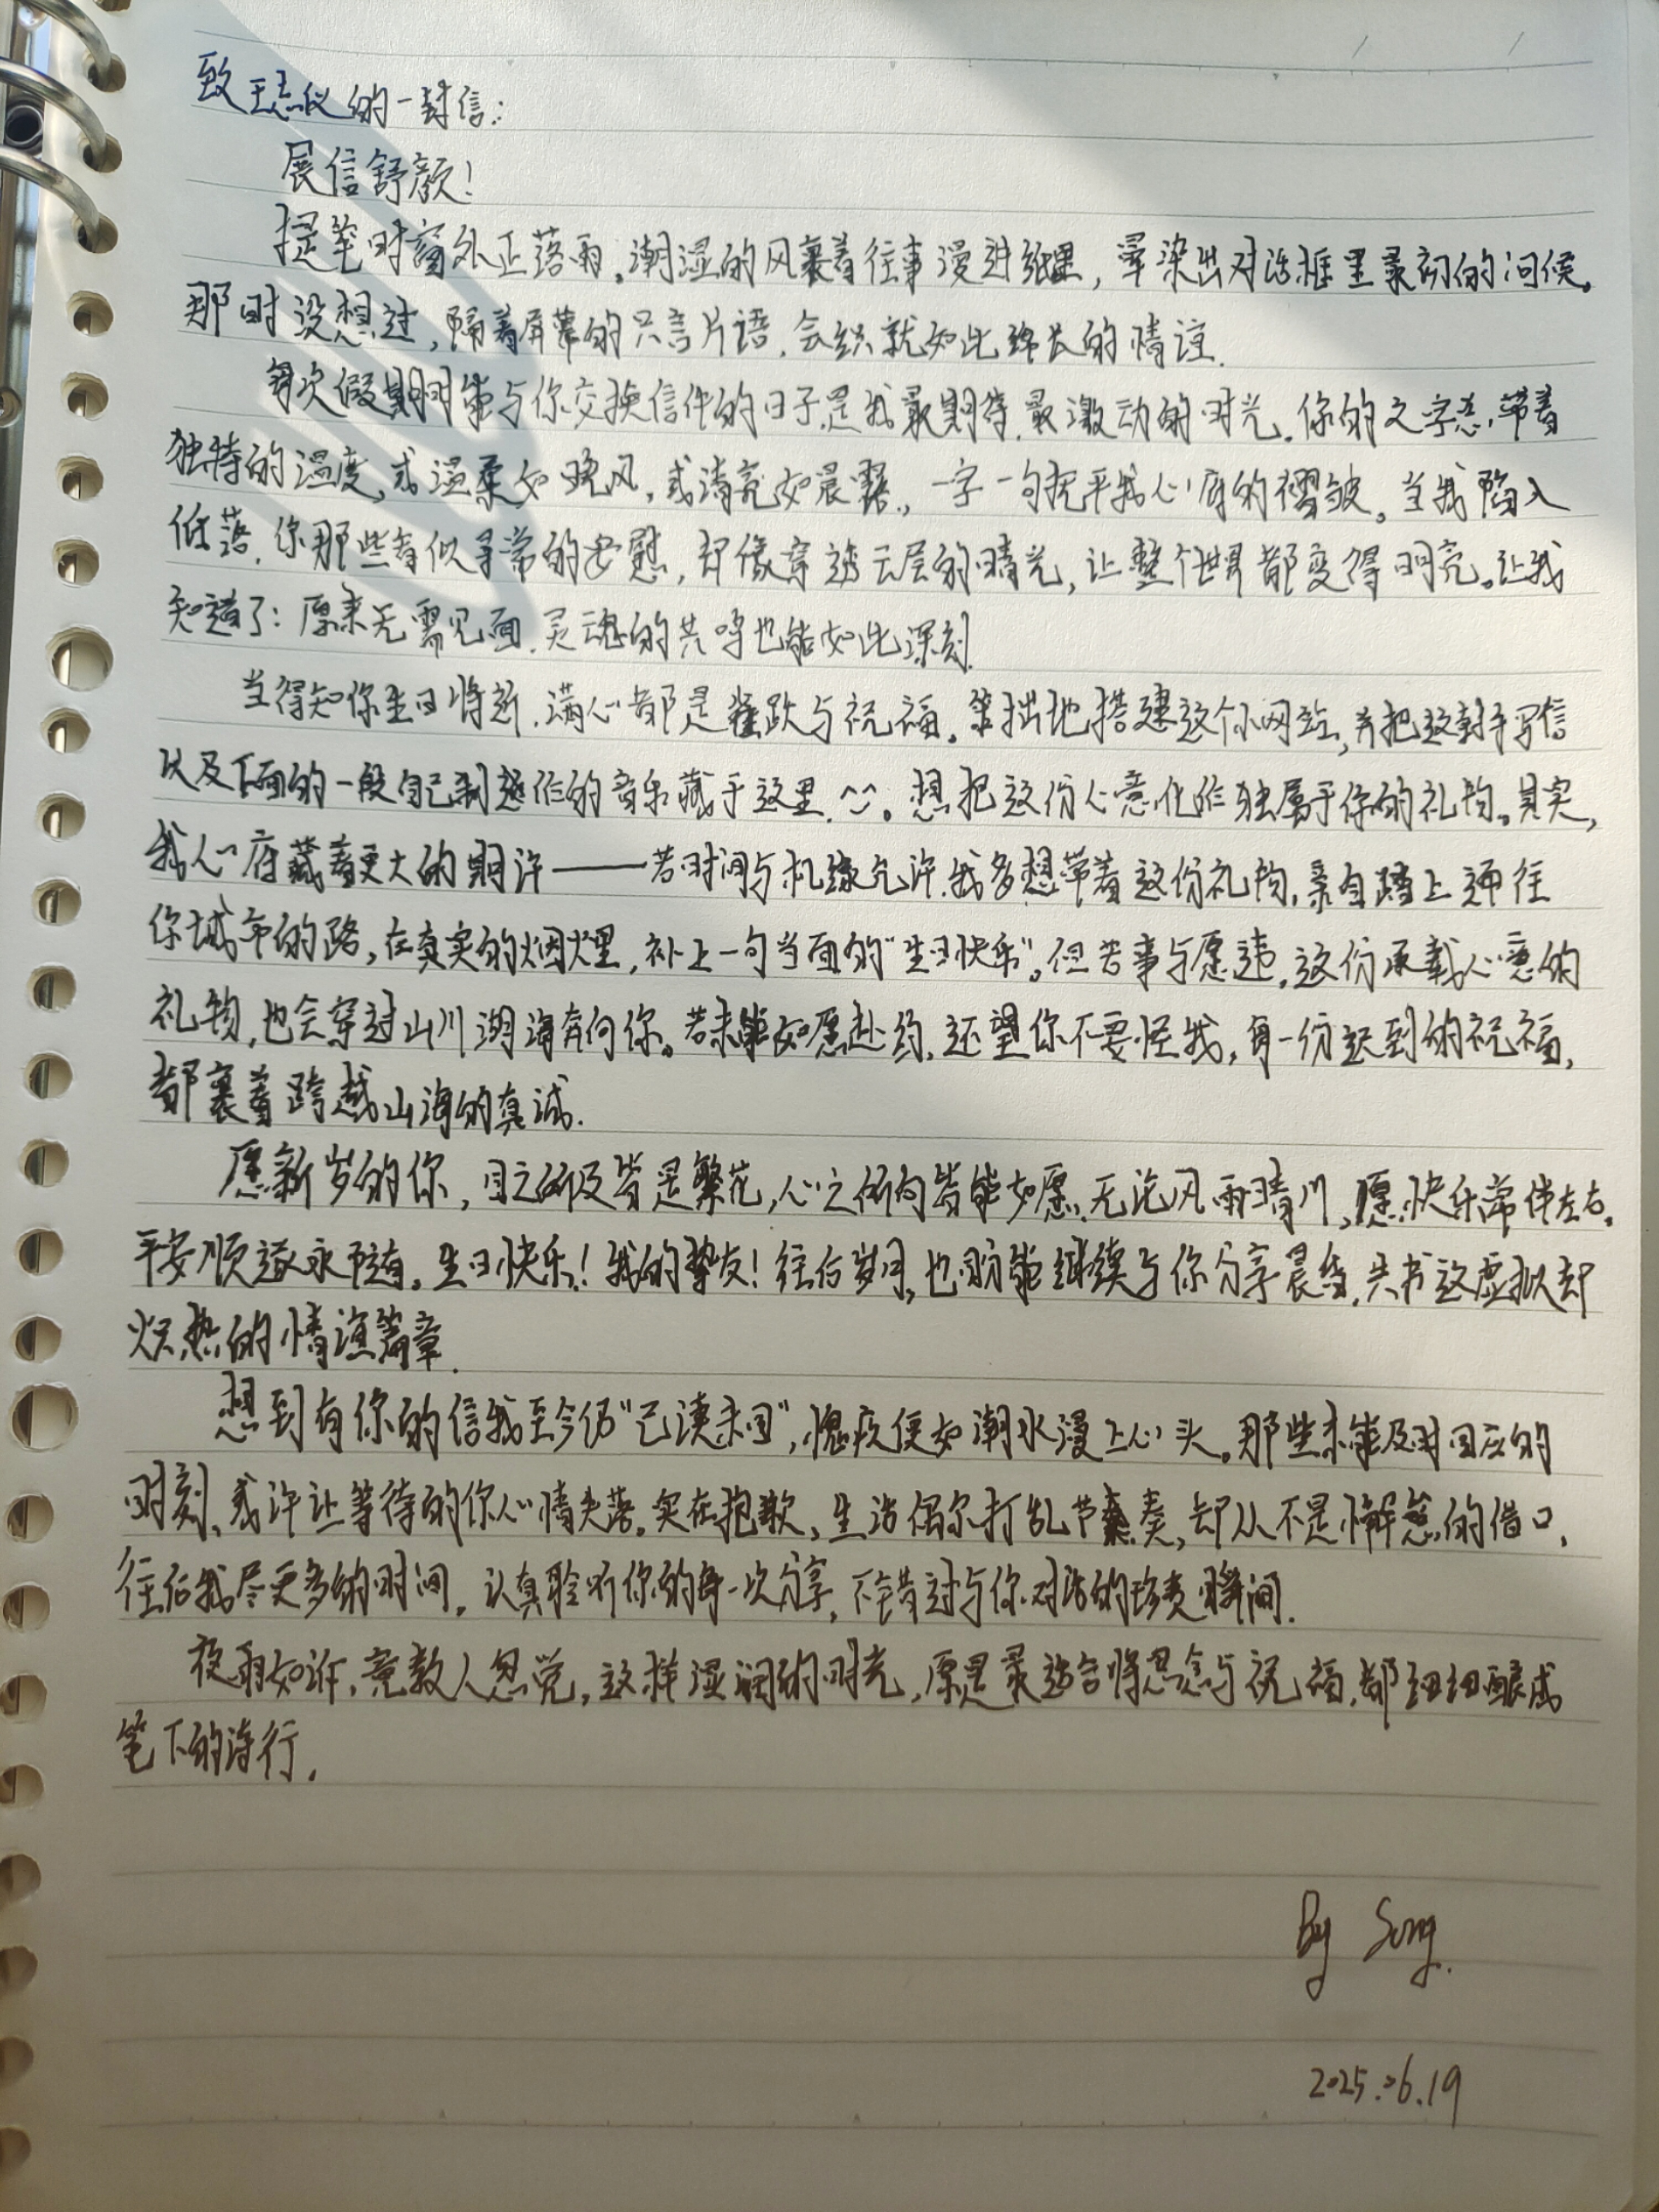 致王思仪的一封信：
展信舒颜！
提笔时窗外正落雨。潮湿的风裹着往事漫进纸里，晕染出对话框里最初的问候。
那时没想过，隔着屏幕的只言片语，会织就如此绵长的情谊.
每次假期间能与你交换信件的日子是我最期待.最激动的时光.你的文字总带着
独特的温度，或温柔如晚风，或清亮如晨露，一字一句抚平我心底的褶皱。当我陷入
低落.你那些看似寻常的安慰，却像穿透云层的晴光，让整个世界都变得明亮。让我
知道了：原来无需见面.灵魂的共鸣也能如此深刻.
当得知你生日将近.满心都是雀跃与祝福。笨拙地搭建这个小网站，并把这封手写信
以及下面的一段自己制作的音乐藏于这里.^^。想把这份心意化作独属于你的礼物。其实，
我心底藏着更大的期许——若时间与机缘允许.我多想带着这份礼物，亲自踏上通往
你城市的路，在真实的烟火里，补上一句当面的“生日快乐”。但若事与愿违，这份承载心意的
礼物，也会穿过山川湖海奔向你。若未能如愿赴约，还望你不要怪我，每一份迟到的祝福，
都裹着跨越山海的真诚.
愿新岁的你，目之所及皆是繁花，心之所向皆能如愿.无论风雨晴川，愿快乐常伴左右。
平安顺遂永相随。生日快乐！我的挚友！往后岁月，也盼能继续与你分享晨昏.共书这虚拟却
炽热的情谊篇章.
想到有你的信我至今仍“已读未回”，愧疚便如潮水漫上心头。那些未能及时回应的
时刻、或许让等待的你心情失落。实在抱歉，生活偶尔打乱节奏，却从不是懈怠的借口，
往后我尽更多的时间，认真聆听你的每一次分享，不错过与你对话的珍贵瞬间.
夜雨如诉，竟教人忽觉，这样湿润的时光，原是最适合将思念与祝福，都细细酿成
笔下的诗行.
By Song.
2025.06.19